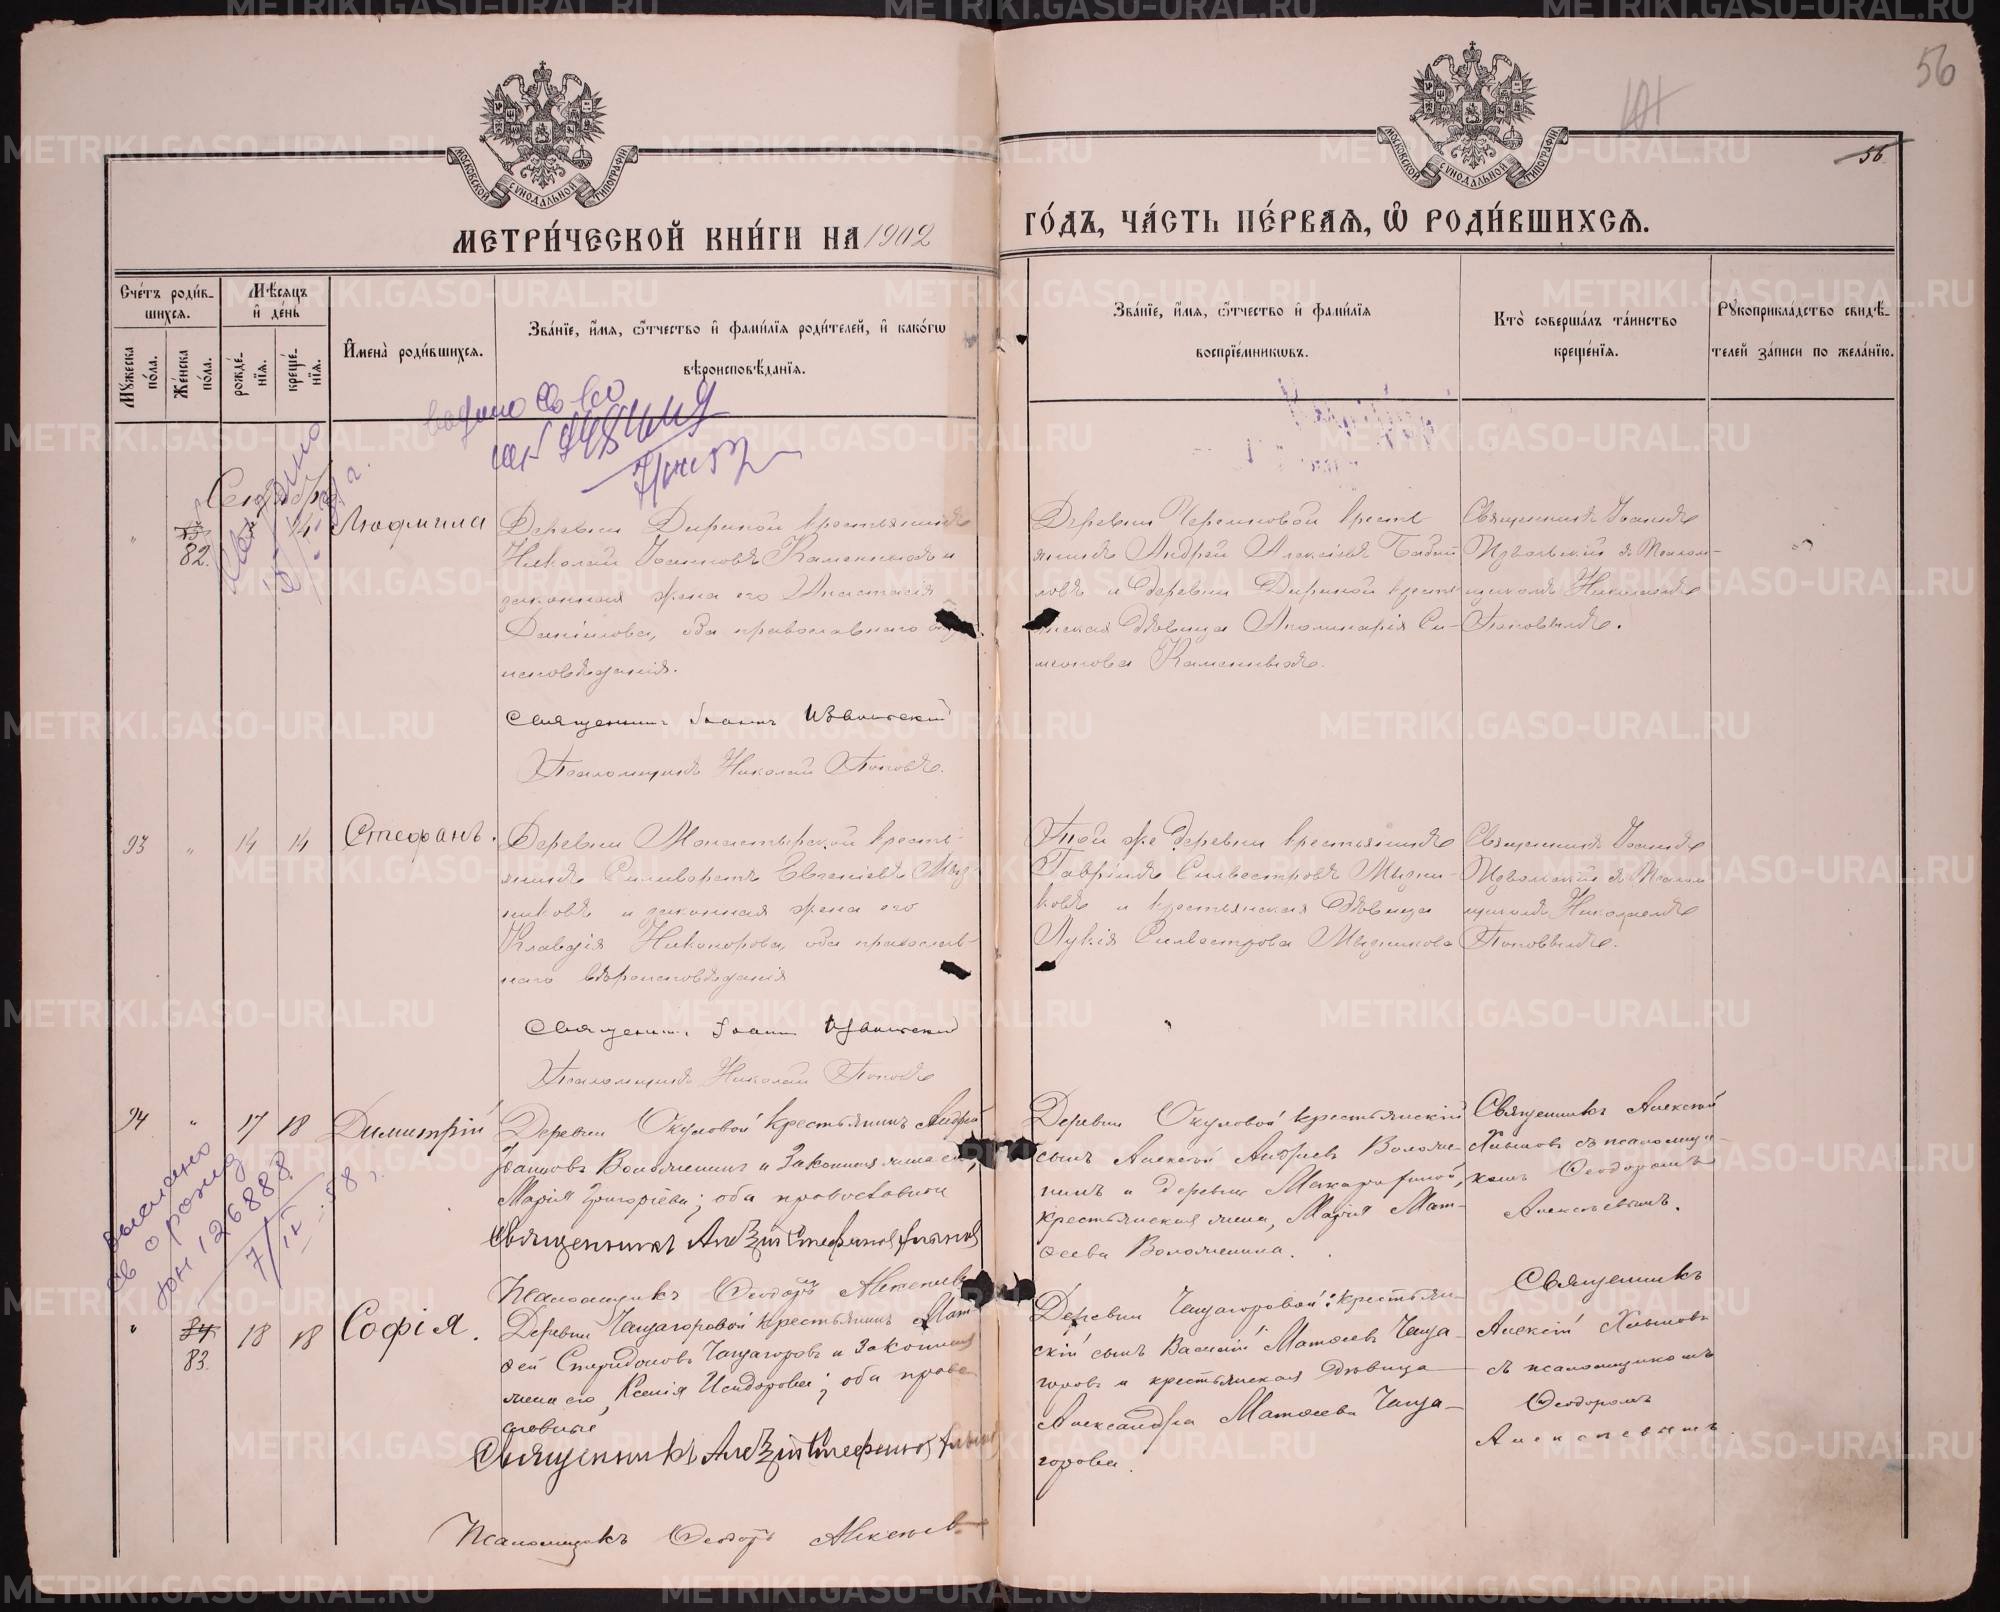 56
МОСКОВСКОЙ СѴНОДАЛЬНОЙ ТИПОГРАФІИ
МОСКОВСКОЙ СѴНОДАЛЬНОЙ ТИПОГРАФІИ
56
МЕТРИ́ЧЕСКОЙ КНИ́ГИ НА 1902
ГО́ДЪ, ЧА́СТЬ ПЕ́РВАѦ, Ѡ҆ РОДИ́ВШИХСѦ.
Сче́тъ роди́в-
шихсѧ.
Мꙋ́жеска по́ла.
Же́нска по́ла.
Мѣ́сѧцъ и҆ де́нь
рожде́-нїѧ.
креще́-нїѧ.
И҆мена̀ роди́вшихсѧ.
Зва́нїе, и҆́мѧ, ѻ҆́тчество и҆ фами́лїѧ роди́телей, и҆ како́гѡ
вѣроисповѣ́данїѧ.
Зва́нїе, и҆́мѧ, ѻ҆́тчество и҆ фами́лїѧ
воспрїе́мникѡвъ.
Кто̀ соверша́лъ та́инство
креще́нїѧ.
Рꙋкоприкла́дство свидѣ́-
телей за́писи по жела́нїю.
82.
14
Людмила
Деревни Дириной крестьянинъ
Николай Іоанновъ Каменныхъ и
законная жена его Анастасія
Даніилова, оба православнаго вѣро
исповѣданія.
Священникъ Іоаннъ
Псаломщикъ Николай Поповъ.
Деревни Черемховой кресть
янинъ Андрей Алексіевъ
и деревни Дириной кресть
янская дѣвица Аполинарія Си-
меонова Каменныхъ.
Священникъ Іоаннъ
съ псалом-
щикомъ Николаемъ
Поповымъ.
93
"
14
14
Стефанъ.
Деревни Монастырской кресть-
янинъ Силиверстъ Евгеніевъ
и законная жена его
Клавдія Никонорова, оба православ-
наго вѣроисповѣданія
Священникъ Іоаннъ
Псаломщикъ Николай Поповъ
Той же деревни крестьянинъ
Гавріилъ Сильвестровъ
и крестьянская дѣвица
Лукія Сильвестрова
Священникъ Іоаннъ
съ псалом
щикомъ Николаемъ
Поповымъ.
94
"
17
18
Димитрій
Деревни Окуловой крестьянинъ Андрей
Іоанновъ Воложенинъ и законная жена его,
Марія Григоріева; оба православные
Священникъ Алексій Стефановъ Хлыновъ
Псаломщикъ Ѳеодоръ Алексѣевъ
Деревни Окуловой крестьянскій
сынъ Алексѣй Андреевъ Воложе-
нинъ и деревни
крестьянская жена, Марія Мат-
ѳеева Воложенина.
Священникъ Алексѣй
Хлыновъ съ псаломщи-
комъ Ѳеодоромъ
Алексѣевымъ.
выслано
св о рожд
ЮН 126888
7/IV-58 г.
"
83.
18
18
Софія.
Деревни Чащегоровой крестьянинъ Мат-
ѳей Спиридоновъ Чащегоровъ и законная
жена его, Ксенія Исидорова; оба право
славные
Священникъ Алексій Стефановъ Хлыновъ
Псаломщикъ Ѳеодоръ Алексѣевъ
Деревни Чащегоровой: крестьян-
скій сынъ Василій Матѳеевъ Чаще-
горовъ и крестьянская дѣвица
Александра Матѳеева Чаще-
горова.
Священникъ
Алексій Хлыновъ
съ псаломщикомъ
Ѳеодоромъ
Алексѣевымъ.